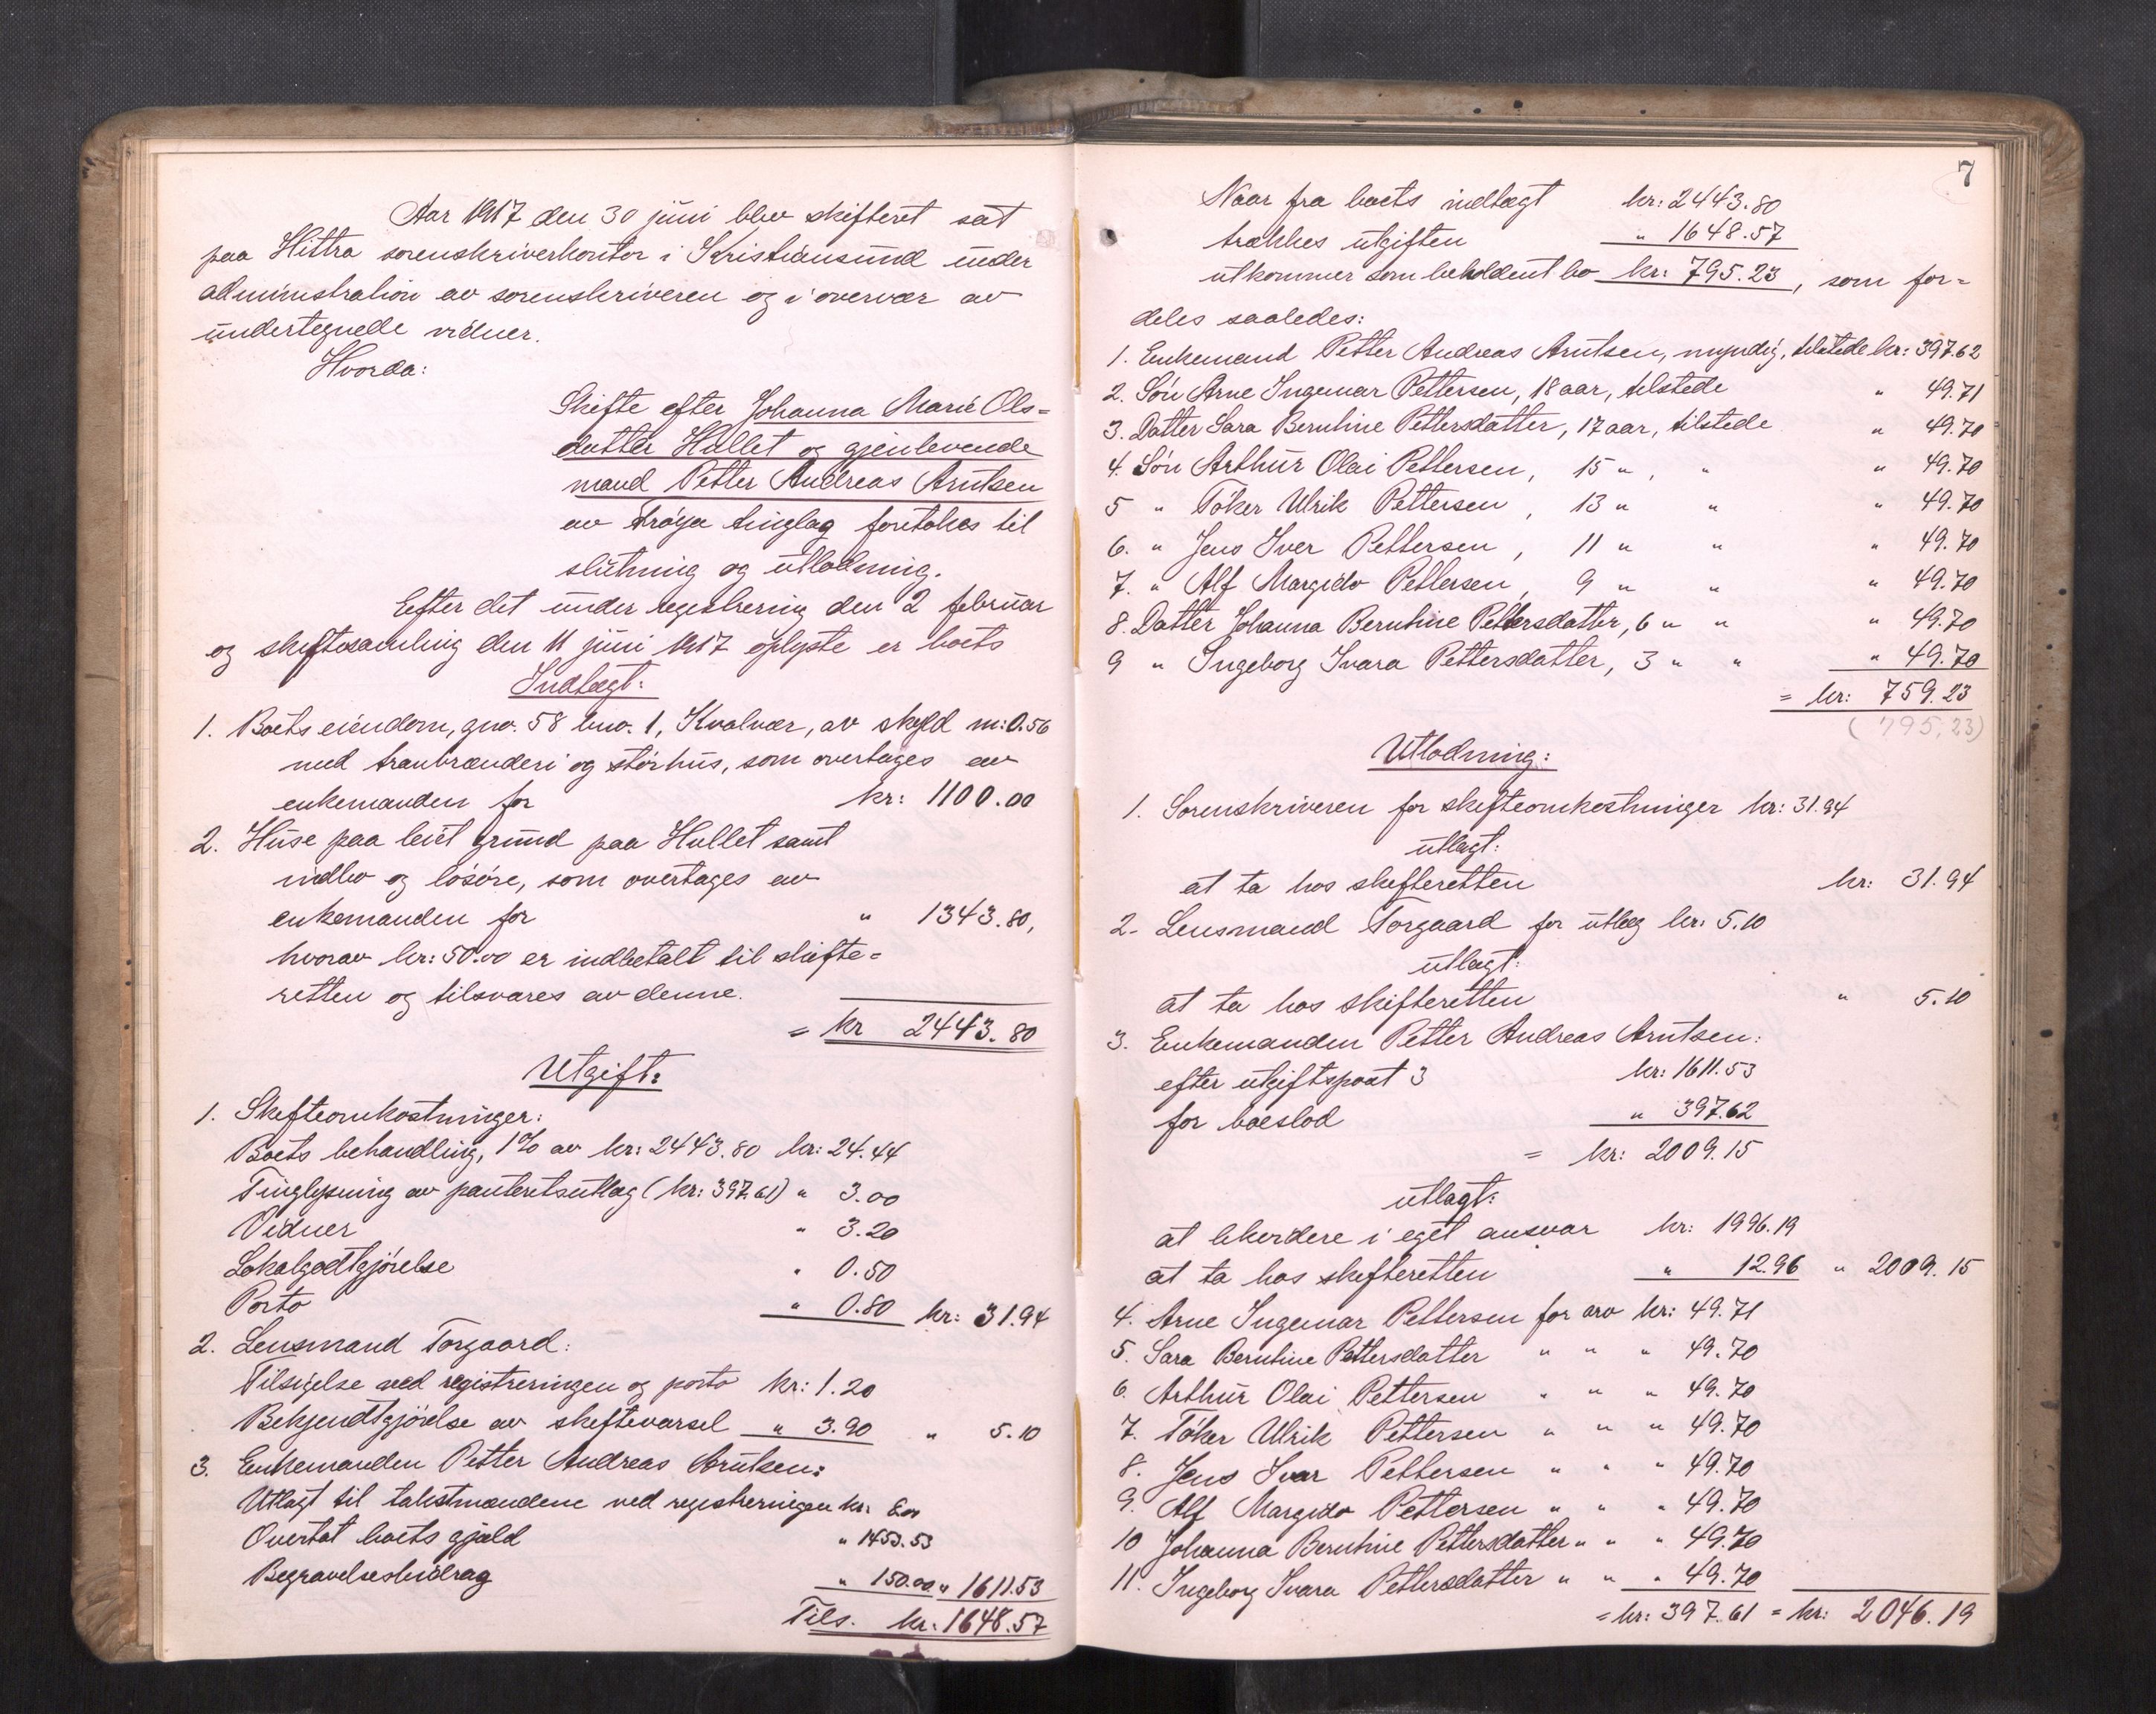 Aar 1917 den 30 juni blev skifteret sat
paa Hittra sorenskriverkontor i Kristiansund under
administration av sorenskriveren og i overvær av
undertegnede vidner.
Hvorda:
Skifte efter Johanna Marie Ols=
datter Hullet og gjenlevende
mand Petter Andreas Arntsen
av Frøya tinglag foretokes til
slutning og utlodning.
Efter det under registrering den 2 februar
og skiftesamling den 11 juni 1917 oplyste er boets
Indtægt:
1. Boets eiendom, gno. 58 bno. 1, Kvalvær, av skyld m: 0.56
med tranbrænderi og størhus, som overtages av
enkemanden for kr: 1100.00
2. Huse paa leiet grund paa Hullet samt
indbo og løsøre, som overtages av
enkemanden for " 1343.80,
hvorav kr: 50.00 er indbetalt til skifte=
retten og tilsvares av denne.
= kr 2443.80
Utgift:
1. Skifteomkostninger:
Boets behandling, 1% av kr: 2443.80 kr: 24.44
Tinglysning av panteretsutlæg (kr: 397.61) " 3.00
Vidner " 3.20
Lokalgodtgjørelse " 0.50
Porto " 0.80 kr: 31.94
2. Lensmand Torgaard:
Tilsigelse ved registreringen og porto kr: 1.20
Bekjendtgjørelse av skiftevarsel " 3.90 " 5.10
3. Enkemanden Petter Andreas Arntsen:
Utlagt til takstmændene ved registreringen kr: 8.00
Overtat boets gjæld " 1453.53
Begravelsesbidrag " 150.00 " 1611.53
Tils. kr: 1648.57
7
Naar fra boets indtægt kr: 2443.80
trækkes utgiften " 1648.57
utkommer som beholdent bo kr: 795.23, som for=
deles saaledes:
1. Enkemand Petter Andreas Arntsen, myndig, tilstede kr: 397.62
2. Søn Arne Ingemar Pettersen, 18 aar, tilstede " 49.71
3. Datter Sara Berntine Pettersdatter, 17 aar, tilstede " 49.70
4. Søn Arthur Olai Pettersen, 15 ", " " 49.70
5 " Tøker Ulrik Pettersen, 13 " " " 49.70
6. " Jens Iver Pettersen, 11 " " " 49.70
7. " Alf Margido Pettersen, 9 " " " 49.70
8. Datter Johanna Berntine Pettersdatter, 6 " " " 49.70
9 " Ingeborg Ivara Pettersdatter, 3 " " " 49.70
= kr: 759.23
(795,23)
Utlodning:
1. Sorenskriveren for skifteomkostninger kr: 31.94
utlagt:
at ta hos skifteretten kr: 31.94
2. Lensmand Torgaard for utlæg kr: 5.10
utlagt:
at ta hos skifteretten " 5.10
3. Enkemanden Petter Andreas Arntsen:
efter utgiftspost 3 kr: 1611.53
for boeslod " 397.62
= kr: 2009.15
utlagt:
at likvidere i eget ansvar kr: 1996.19
at ta hos skifteretten " 12.96 " 2009.15
4. Arne Ingemar Pettersen for arv kr: 49.71
5. Sara Berntine Pettersdatter " " " 49.70
6. Arthur Olai Pettersen " " " 49.70
7. Tøker Ulrik Pettersen " " " 49.70
8. Jens Ivar Pettersen " " " 49.70
9. Alf Margido Pettersen " " " 49.70
10 Johanna Berntine Pettersdatter " " " 49.70
11. Ingeborg Ivara Pettersdatter " " " 49.70
= kr: 397.61 = kr: 2046.19